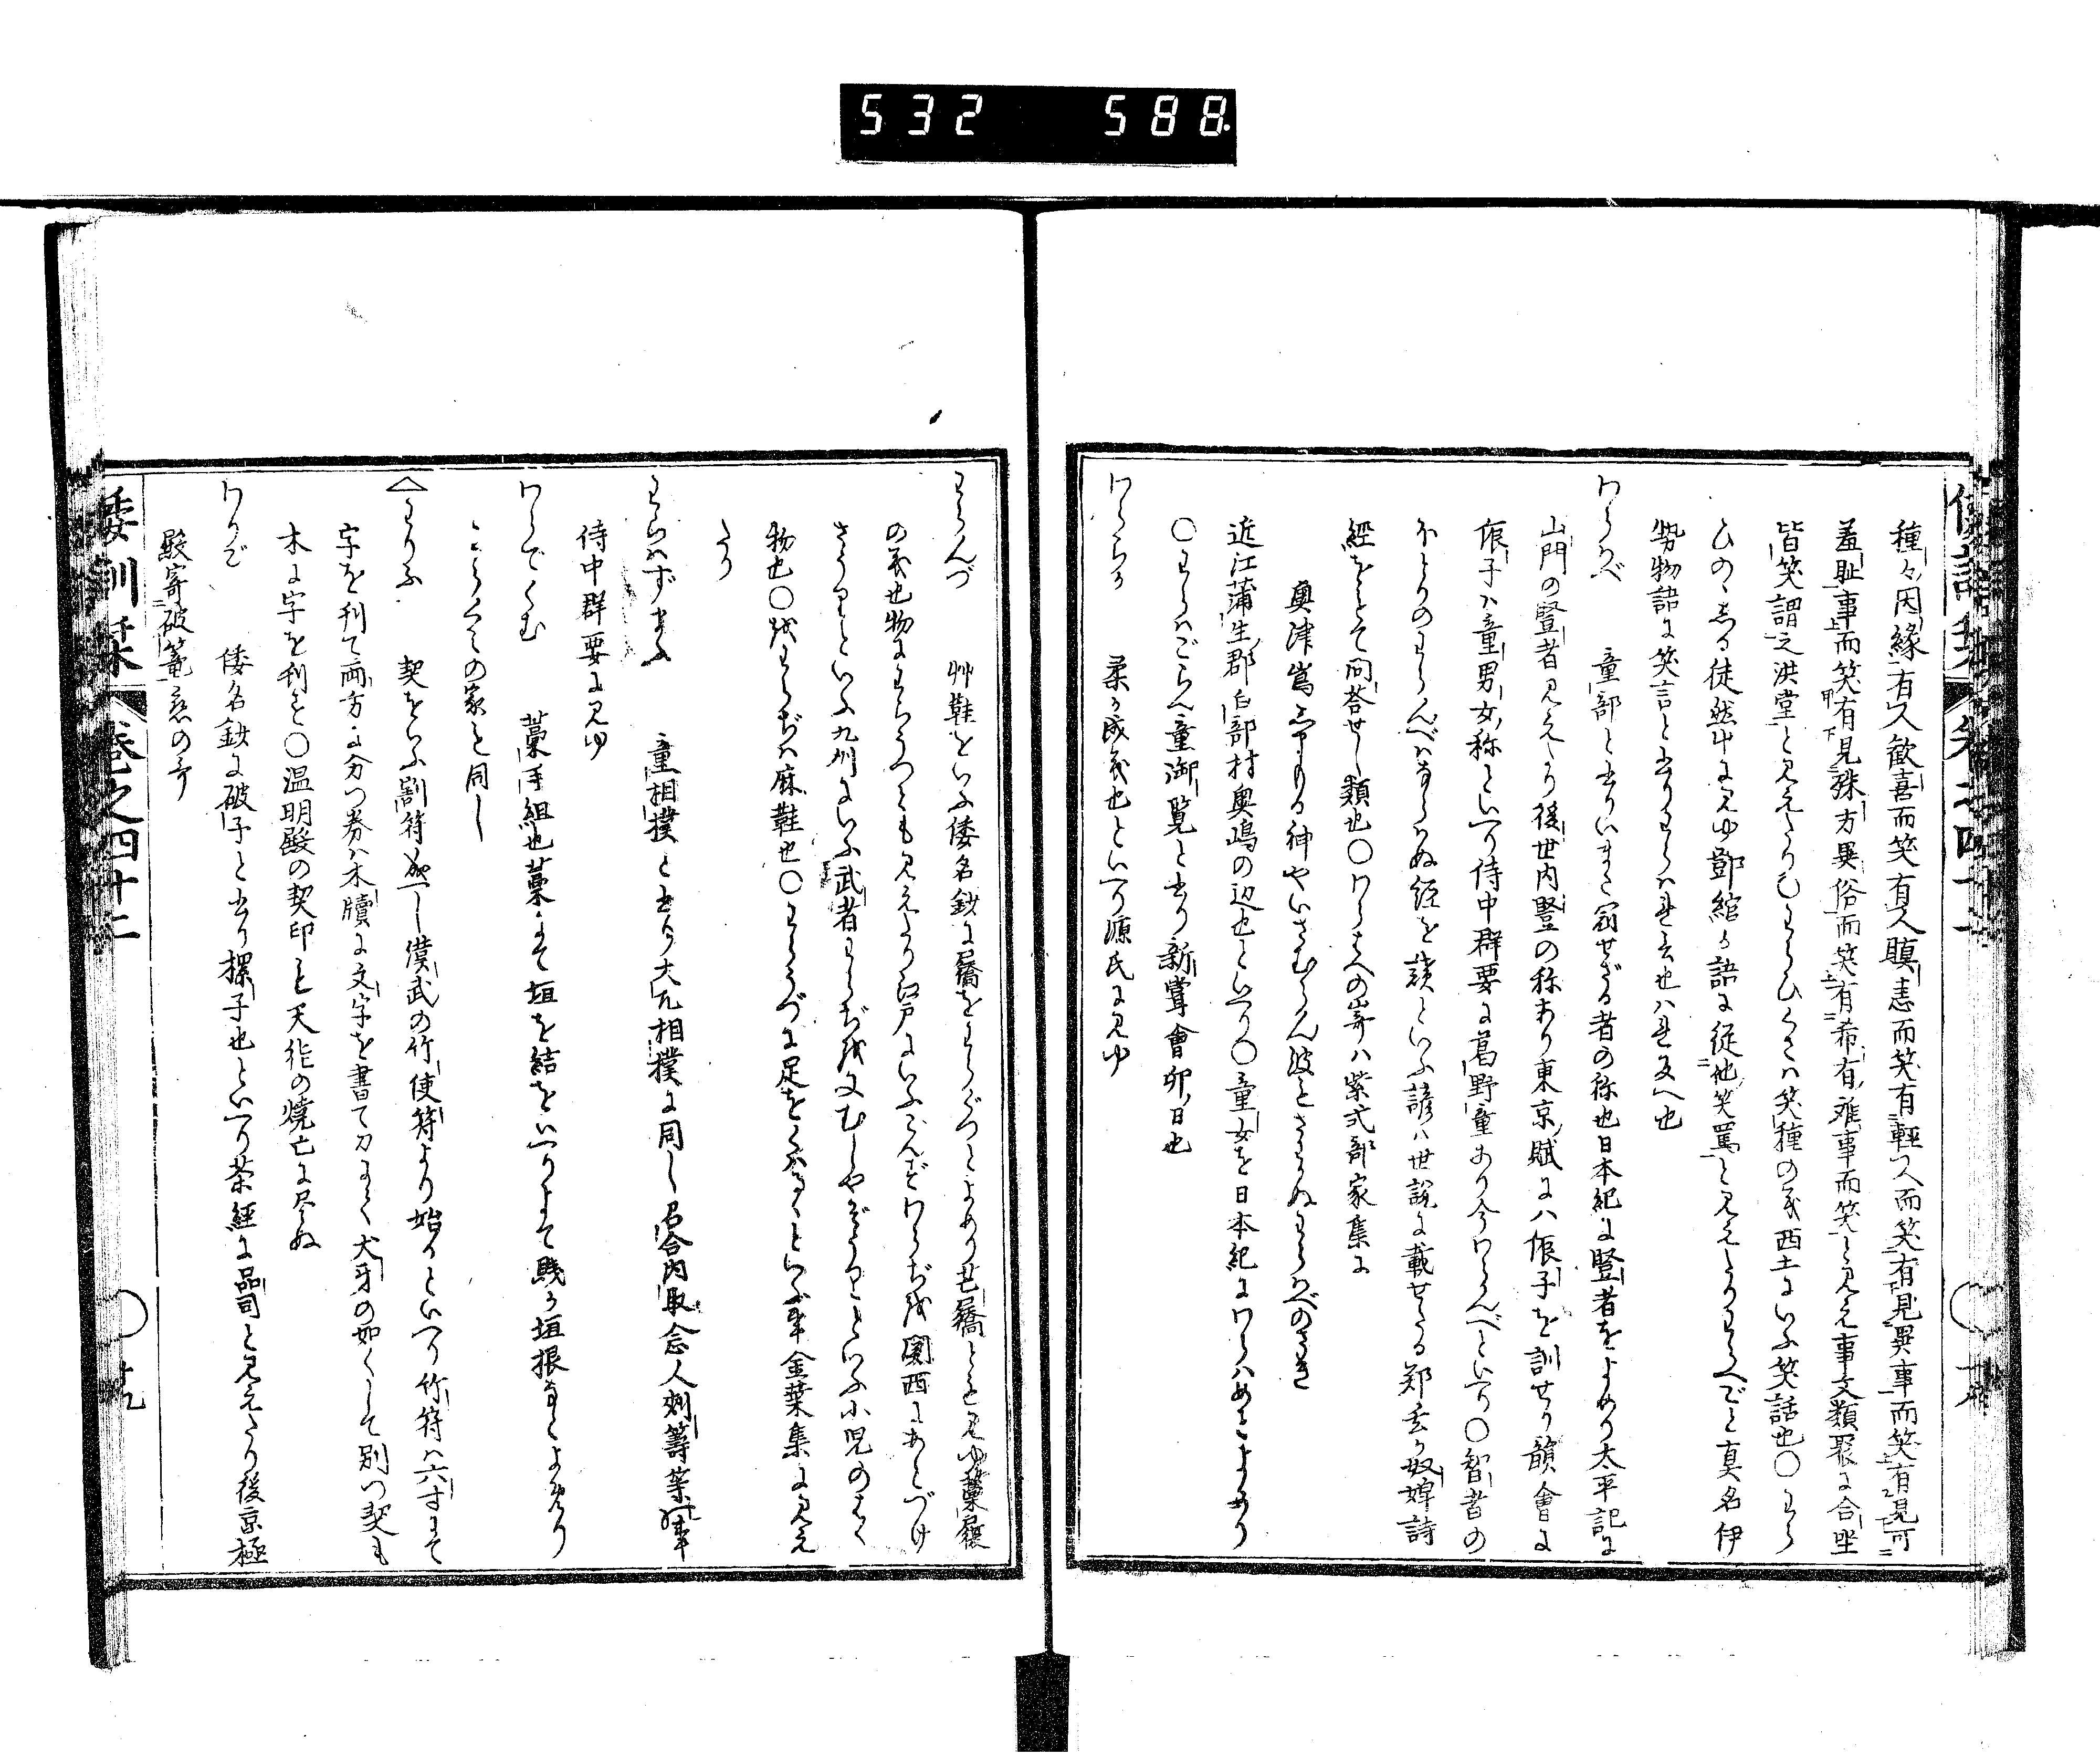 532 588
種々因縁有人歓喜而笑有人瞋恚而笑有輕人而笑有見異事而笑有見可
羞耻事而笑有見殊方異俗而笑有希有難事而笑と見え事文類聚に合坐
皆笑謂之洪堂と見えたり〇わらひくさハ笑種の義西土にいふ笑話也〇わら
ひのゝしる徒然草に見ゆ鄧綰か語に従他笑罵と見えたりわらへごと真名伊
勢物語に笑言と書りわらハれ言也ハれ反へ也
わらハべ 童部と書りいまた冠せざる者の称也日本紀に豎者をよめり太平記に
山門の豎者見えたり後世内豎の称あり東京賦にハ侲子を訓せり韻會に
侲子ハ童男女称といへり侍中群要に葛野童あり今わらんべといへり〇智者の
ほとりのわらんべハならハぬ経を讀といふ諺ハ世説に載せたる郑玄か奴婢詩
經をもて問答せし類也〇わらハへの峯ハ紫式部家集に
奥津嶌しまもる神やいさむらん波もさわかぬわらハべのうらき
近江蒲生郡白部村奥嶋の辺也といへり〇童女を日本紀にわらハめとよめり
〇わらハごらん童御覧と書り新嘗會卯日也
わららか 柔か成義也といへり源氏に見ゆ
わらんづ 艸鞋をいふ倭名鈔に屩をわらぐつとよめり芒屩とも見ゆ藁履
の義也物にわらうつとも見えたり江戸にいふごんずわらぢハ関西にあとづけ
ざうりといふ九州にいふ武者わらぢハむしやざうりといふ小児のはく
物也〇をわらぢハ麻鞋也〇わらうづに足をくハるゝといふ事金葉集に見え
たり
わらハずまふ 童相撲と書り大凡相撲に同し召合内取念人刺籌等の事
侍中群要に見ゆ
わらでくむ 藁手組也藁にて垣を結をいへりよて賎か垣根などよめり
こもくミの家と同し
△わりふ 契をいふ割符成へし漢武の竹使符より始るといへり竹符ハ六寸にて
字を刊て両方に分つ券ハ木牘に文字を書て刀にて犬牙の如くして別つ契も
木に字を刊そ〇温明殿の契印も天徳の焼亡に尽ぬ
わりご 倭名鈔に破子と書り樏子也といへり茶經に品司と見えたり後京極
殿寄破籠恋の哥
倭訓栞 巻之四十二